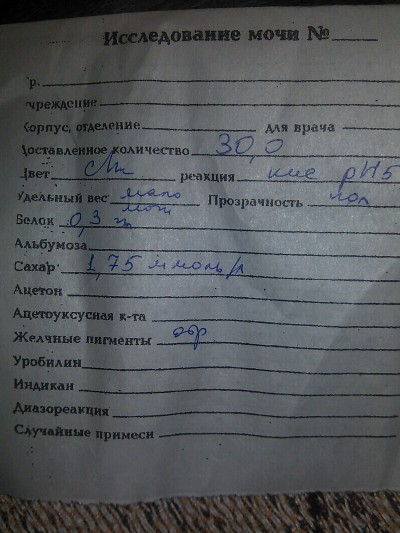 Исследование мочи №
гр.
учреждение
Корпус, отделение для врача
Доставленное количество 30,0
Цвет реакция кис pH5
Удельный вес мало Прозрачность пол
мочи
Белок 0,3 г
Альбумоза
Сахар 1,75 ммоль/л
Ацетон
Ацетоуксусная к-та
Желчные пигменты отр
Уробилин
Индикан
Диазореакция
Случайные примеси